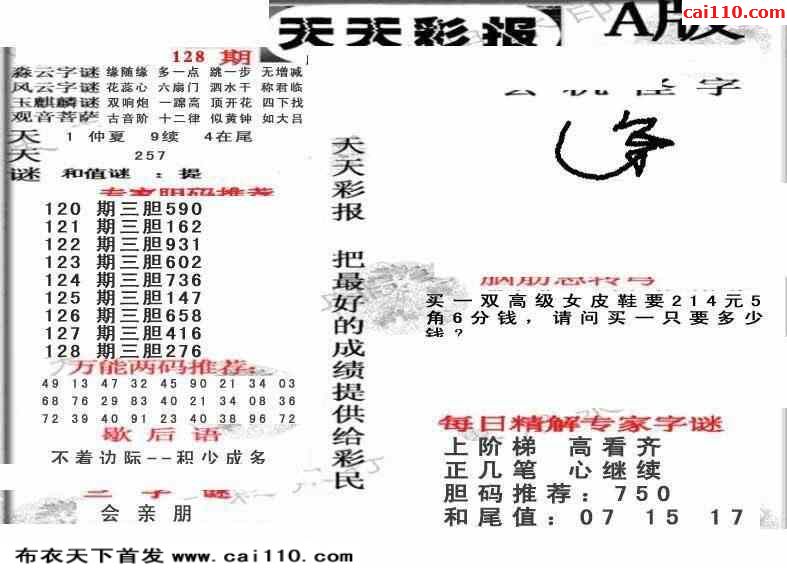 cai110.com
天天彩报 A版
128 期
森云字谜 缘随缘 多一点 跳一步 无增减
风云字谜 花蕊心 六扇门 泗水干 称君临
玉麒麟谜 双响炮 一蹿高 顶开花 四下找
观音菩萨 古音阶 十二律 似黄钟 如大吕
天 1 仲夏 9续 4在尾
天 257
谜 和值谜 : 提
专家胆码推荐
120 期三胆590
121 期三胆162
122 期三胆931
123 期三胆602
124 期三胆736
125 期三胆147
126 期三胆658
127 期三胆416
128 期三胆276
万能两码推荐:
49 13 47 32 45 90 21 34 03
68 76 29 83 40 21 34 08 36
72 39 40 91 23 40 38 96 72
歇后语
不着边际--积少成多
三字谜
会亲朋
天天彩报 把最好的成绩提供给彩民
玄机怪字
脑筋急转弯
买一双高级女皮鞋要214元5
角6分钱，请问买一只要多少
钱?
每日精解专家字谜
上阶梯 高看齐
正几笔 心继续
胆码推荐: 750
和尾值: 07 15 17
布衣天下首发 www.cai110.com